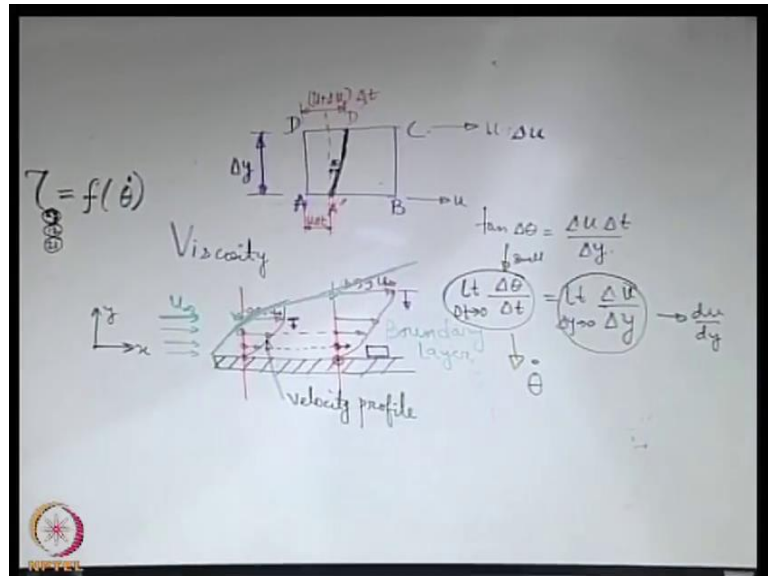 (u+Δu) Δt
D D' C → u+Δu
Δy
τ = f(θ̇)
A A' B → u
uΔt
tan Δθ = Δu Δt / Δy
small
Viscosity
Lt Δt→0 Δθ/Δt = Lt Δy→0 Δu/Δy → du/dy
θ̇
y
x
u∞
Boundary layer
velocity profile
NPTEL